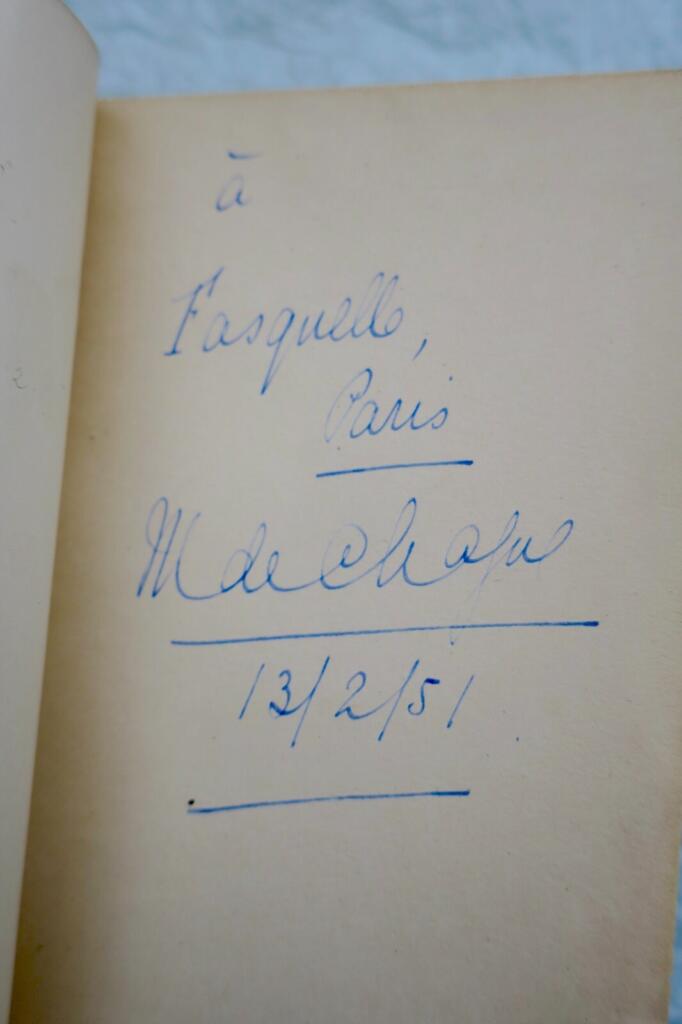 à
Fasquelle,
Paris
M de Chazal
13/2/51